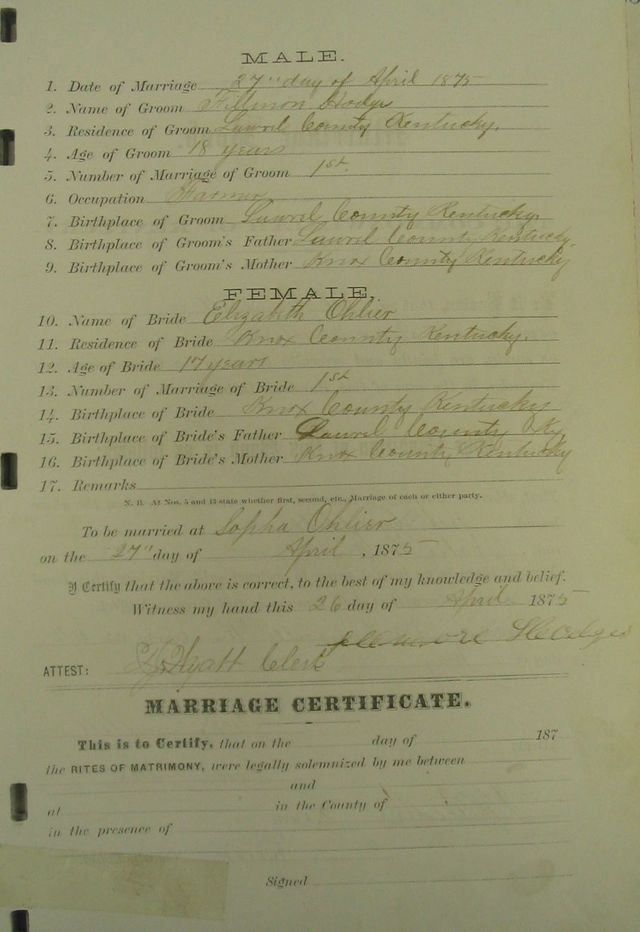 MALE.
1. Date of Marriage 27" day of April 1875
2. Name of Groom Fillmon Hodge
3. Residence of Groom Laurel County Kentucky.
4. Age of Groom 18 years
5. Number of Marriage of Groom 1st.
6. Occupation Farmer
7. Birthplace of Groom Laurel County Kentucky.
8. Birthplace of Groom's Father Laurel County Kentucky.
9. Birthplace of Groom's Mother Knox County Kentucky
FEMALE.
10. Name of Bride Elizabeth Ohlier
11. Residence of Bride Knox County Kentucky.
12. Age of Bride 17 years
13. Number of Marriage of Bride 1st
14. Birthplace of Bride Knox County Kentucky
15. Birthplace of Bride's Father Laurel County Ky
16. Birthplace of Bride's Mother Knox County Kentucky
17. Remarks
N. B. At Nos. 5 and 13 state whether first, second, etc., Marriage of each or either party.
To be married at Sopha Ohlier
on the 27" day of April, 1875
I Certify that the above is correct, to the best of my knowledge and belief.
Witness my hand this 26 day of April 1875
Hodges
ATTEST: Hyatt Clerk
MARRIAGE CERTIFICATE.
This is to Certify, that on the day of 187
the RITES OF MATRIMONY, were legally solemnized by me between
and
at in the County of
in the presence of
Signed